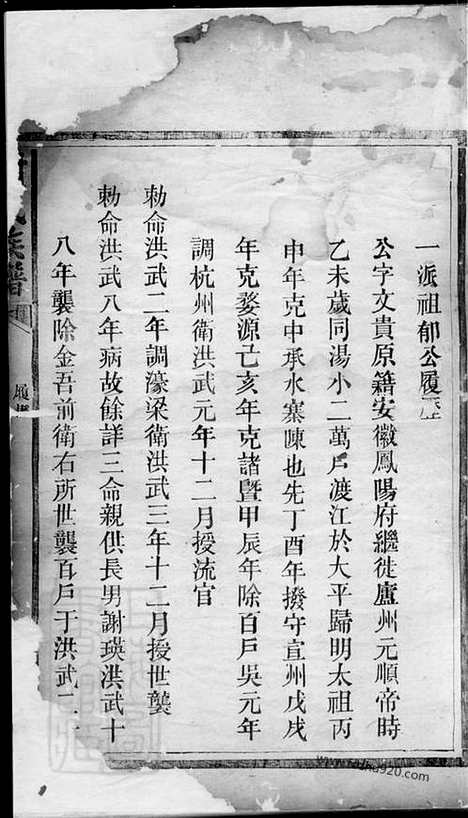 一派祖郁公履歷
公字文貴原籍安徽鳳陽府繼徙廬州元順帝時
乙未歲同湯小二萬戶渡江於大平歸明太祖丙
申年克中承水寨陳也先丁酉年撥守宣州戊戌
年克婺源己亥年克諸暨甲辰年除百戶吳元年
調杭州衛洪武元年十二月授流官
勅命洪武二年調濠梁衛洪武三年十二月授世襲
勅命洪武八年病故餘詳三命親供長男謝瑛洪武十
八年襲除金吾前衛右所世襲百戶于洪武二
氏族譜
www.jiapu920.com